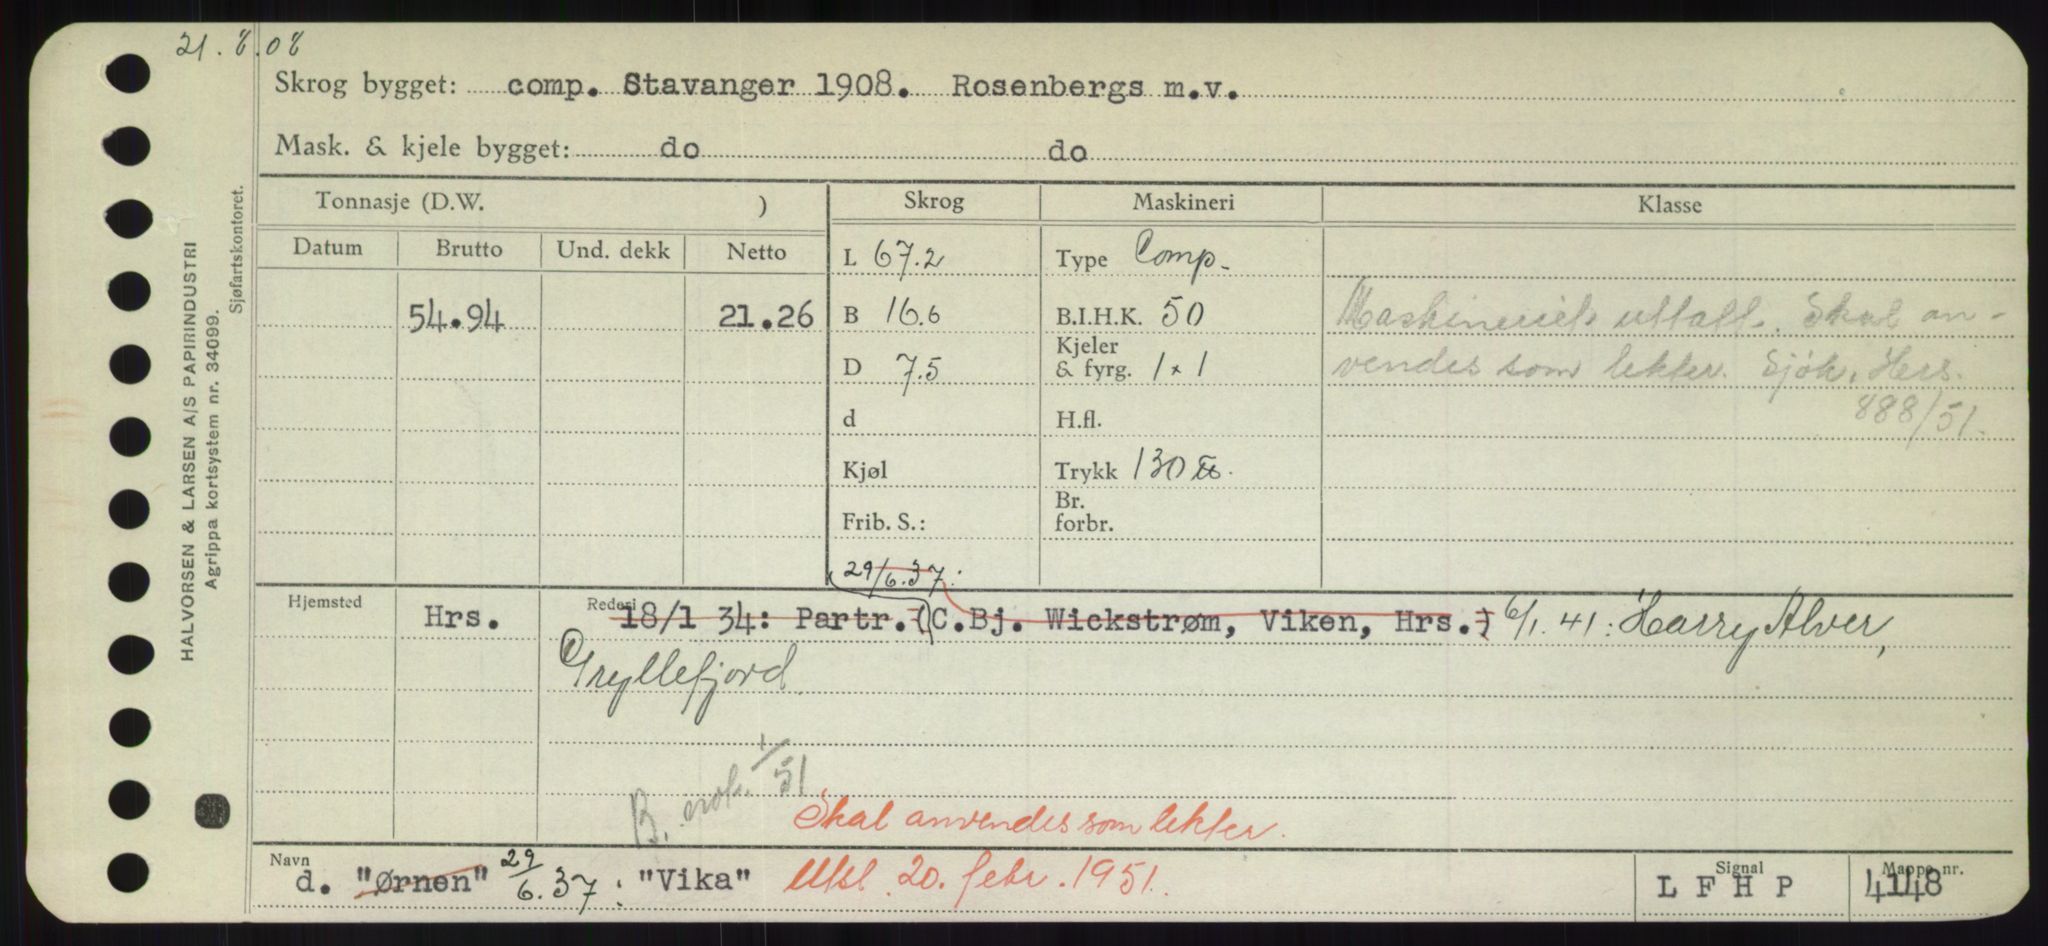 21.8.08
Skrog bygget: comp. Stavanger 1908. Rosenbergs m.v.
Mask. & kjele bygget: do do
Tonnasje (D.W. ) Skrog Maskineri Klasse
Datum Brutto Und. dekk Netto L 67.2 Type Comp.
54.94 21.26 B 16.6 B.I.H.K. 50 Maskineriet uttatt. Skal an-
D 7.5 Kjeler & fyrg. 1 x 1 vendes som lekter. Sjøk. Hrs.
888/51.
d H.fl.
Kjøl Trykk 130 ℔.
Frib. S.: Br. forbr.
29/6.37:
Hjemsted Hrs. Rederi 18/1 34: Partr. (C.Bj. Wickstrøm, Viken, Hrs.) 6/1.41: Harry Alver,
Gryllefjord
B. 1/51
Skal anvendes som lekter.
Navn d. "Ørnen" 29/6.37: "Vika" Utsl. 20. febr. 1951. Signal L F H P Mappe nr. 4148
HALVORSEN & LARSEN A/S PAPIRINDUSTRI
Agrippa kortsystem nr. 34099.
Sjøfartskontoret.